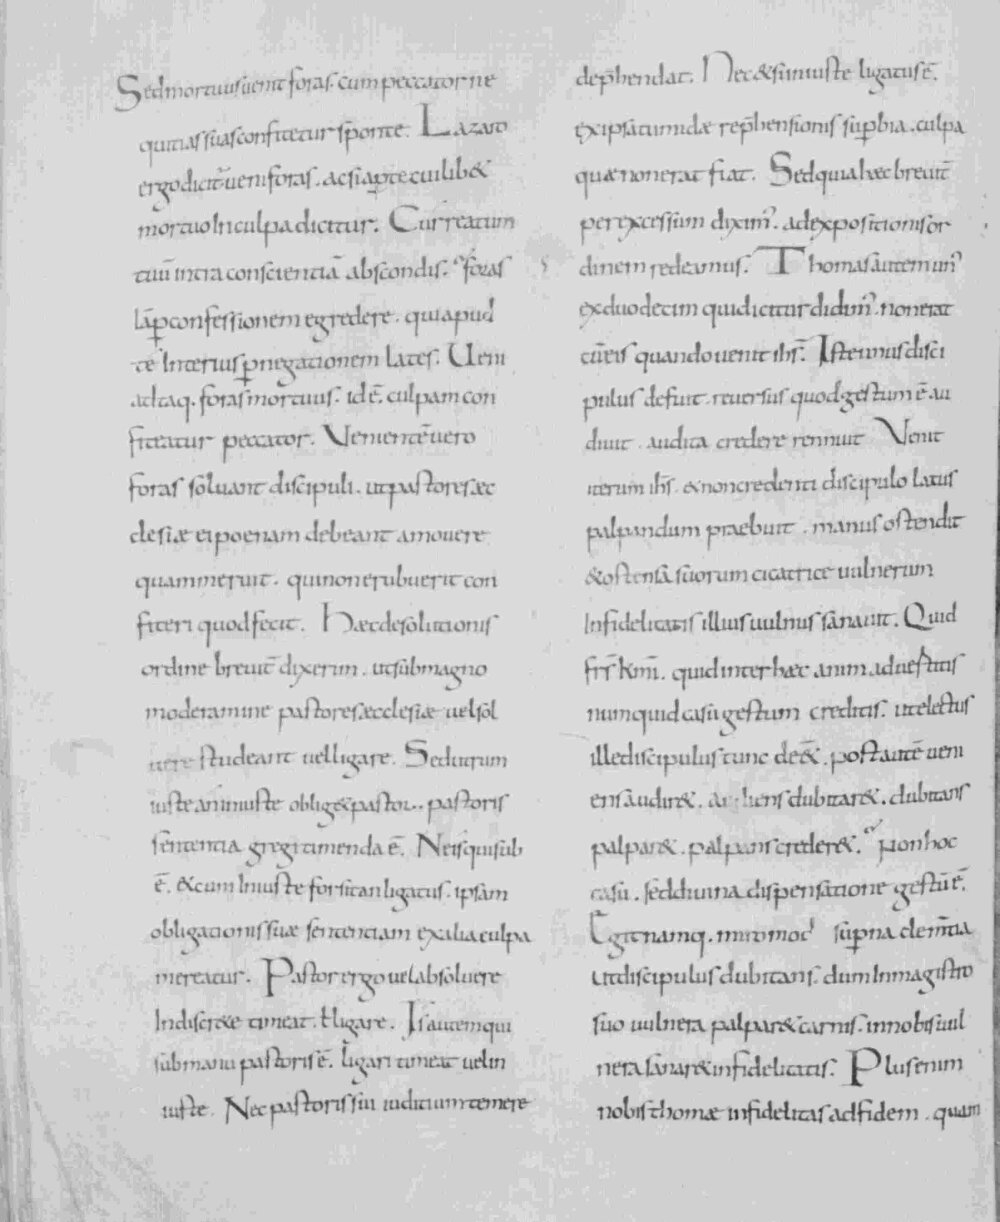 Sed mortuus uenit foras. cum peccator ne
quitias suas confitetur sponte. Lazaro
ergo dicit̄ ueni foras. ac si apte cuilib&
mortuo In culpa dicitur. Cur reatum
tuū intra conscientiā abscondis. foras
iā p confessionem egredere. qui apud
te Interius p negationem lates. Ueni
at itaq. foras mortuus. id ē. culpam con
fiteatur peccator. Venientē uero
foras soluant discipuli. ut pastores æc
clesiæ ei poenam debeant amouere
quam meruit. qui non erubuerit con
fiteri quod fecit. Hæc de solutionis
ordine breuit̄ dixerim. ut sub magno
moderamine pastores æcclesiæ uel sol
uere studeant uel ligare. Sed utrum
iuste an iniuste oblig& pastor. pastoris
sententia gregi timenda ē. Ne is qui sub
ē. & cum Iniuste forsitan ligatus. ipsam
obligationis suæ sententiam ex alia culpa
mereatur. Pastor ergo uel absoluere
Indiscr&e timeat. ł ligare. Is autem qui
sub manu pastoris ē. ligari timeat uel in
iuste. Nec pastoris sui iuditium temere
dep̄hendat. Nec & si iniuste ligatus ē.
ex ipsa tumidæ rep̄hensionis sup̱bia. culpa
quæ non erat fiat. Sed quia hæc breuit̄
per excessum diximꝰ. ad expositionis or
dinem redeamus. Thomas autem unꝰ
ex duodecim qui dicitur didimꝰ. non erat
cū eis quando uenit ihs̄. Iste unus disci
pulus defuit. reuersus quod gestum ē au
diuit. audita credere rennuit Venit
iterum ihs̄. & non credenti discipulo latus
palpandum praebuit. manus ostendit
& ostensa suorum cicatrice uulnerum
Infidelitatis illius uulnus sanauit. Quid
frs̄ kmi. quid inter hæc animaduertitis
numquid casu gestum creditis. ut electus
ille discipulus tunc dee&. post autē ueni
ens audir&. audiens dubitar&. dubitans
palpar&. palpans creder&. Non hoc
casu. sed diuina dispensatione gestū ē.
Egit namq. miro mod sup̱na clem̄tia
Ut discipulus dubitans. dum In magistro
suo uulnera palpar& carnis. in nobis uul
nera sanar& infidelitatis. Plus enim
nobis thomæ infidelitas ad fidem. quam